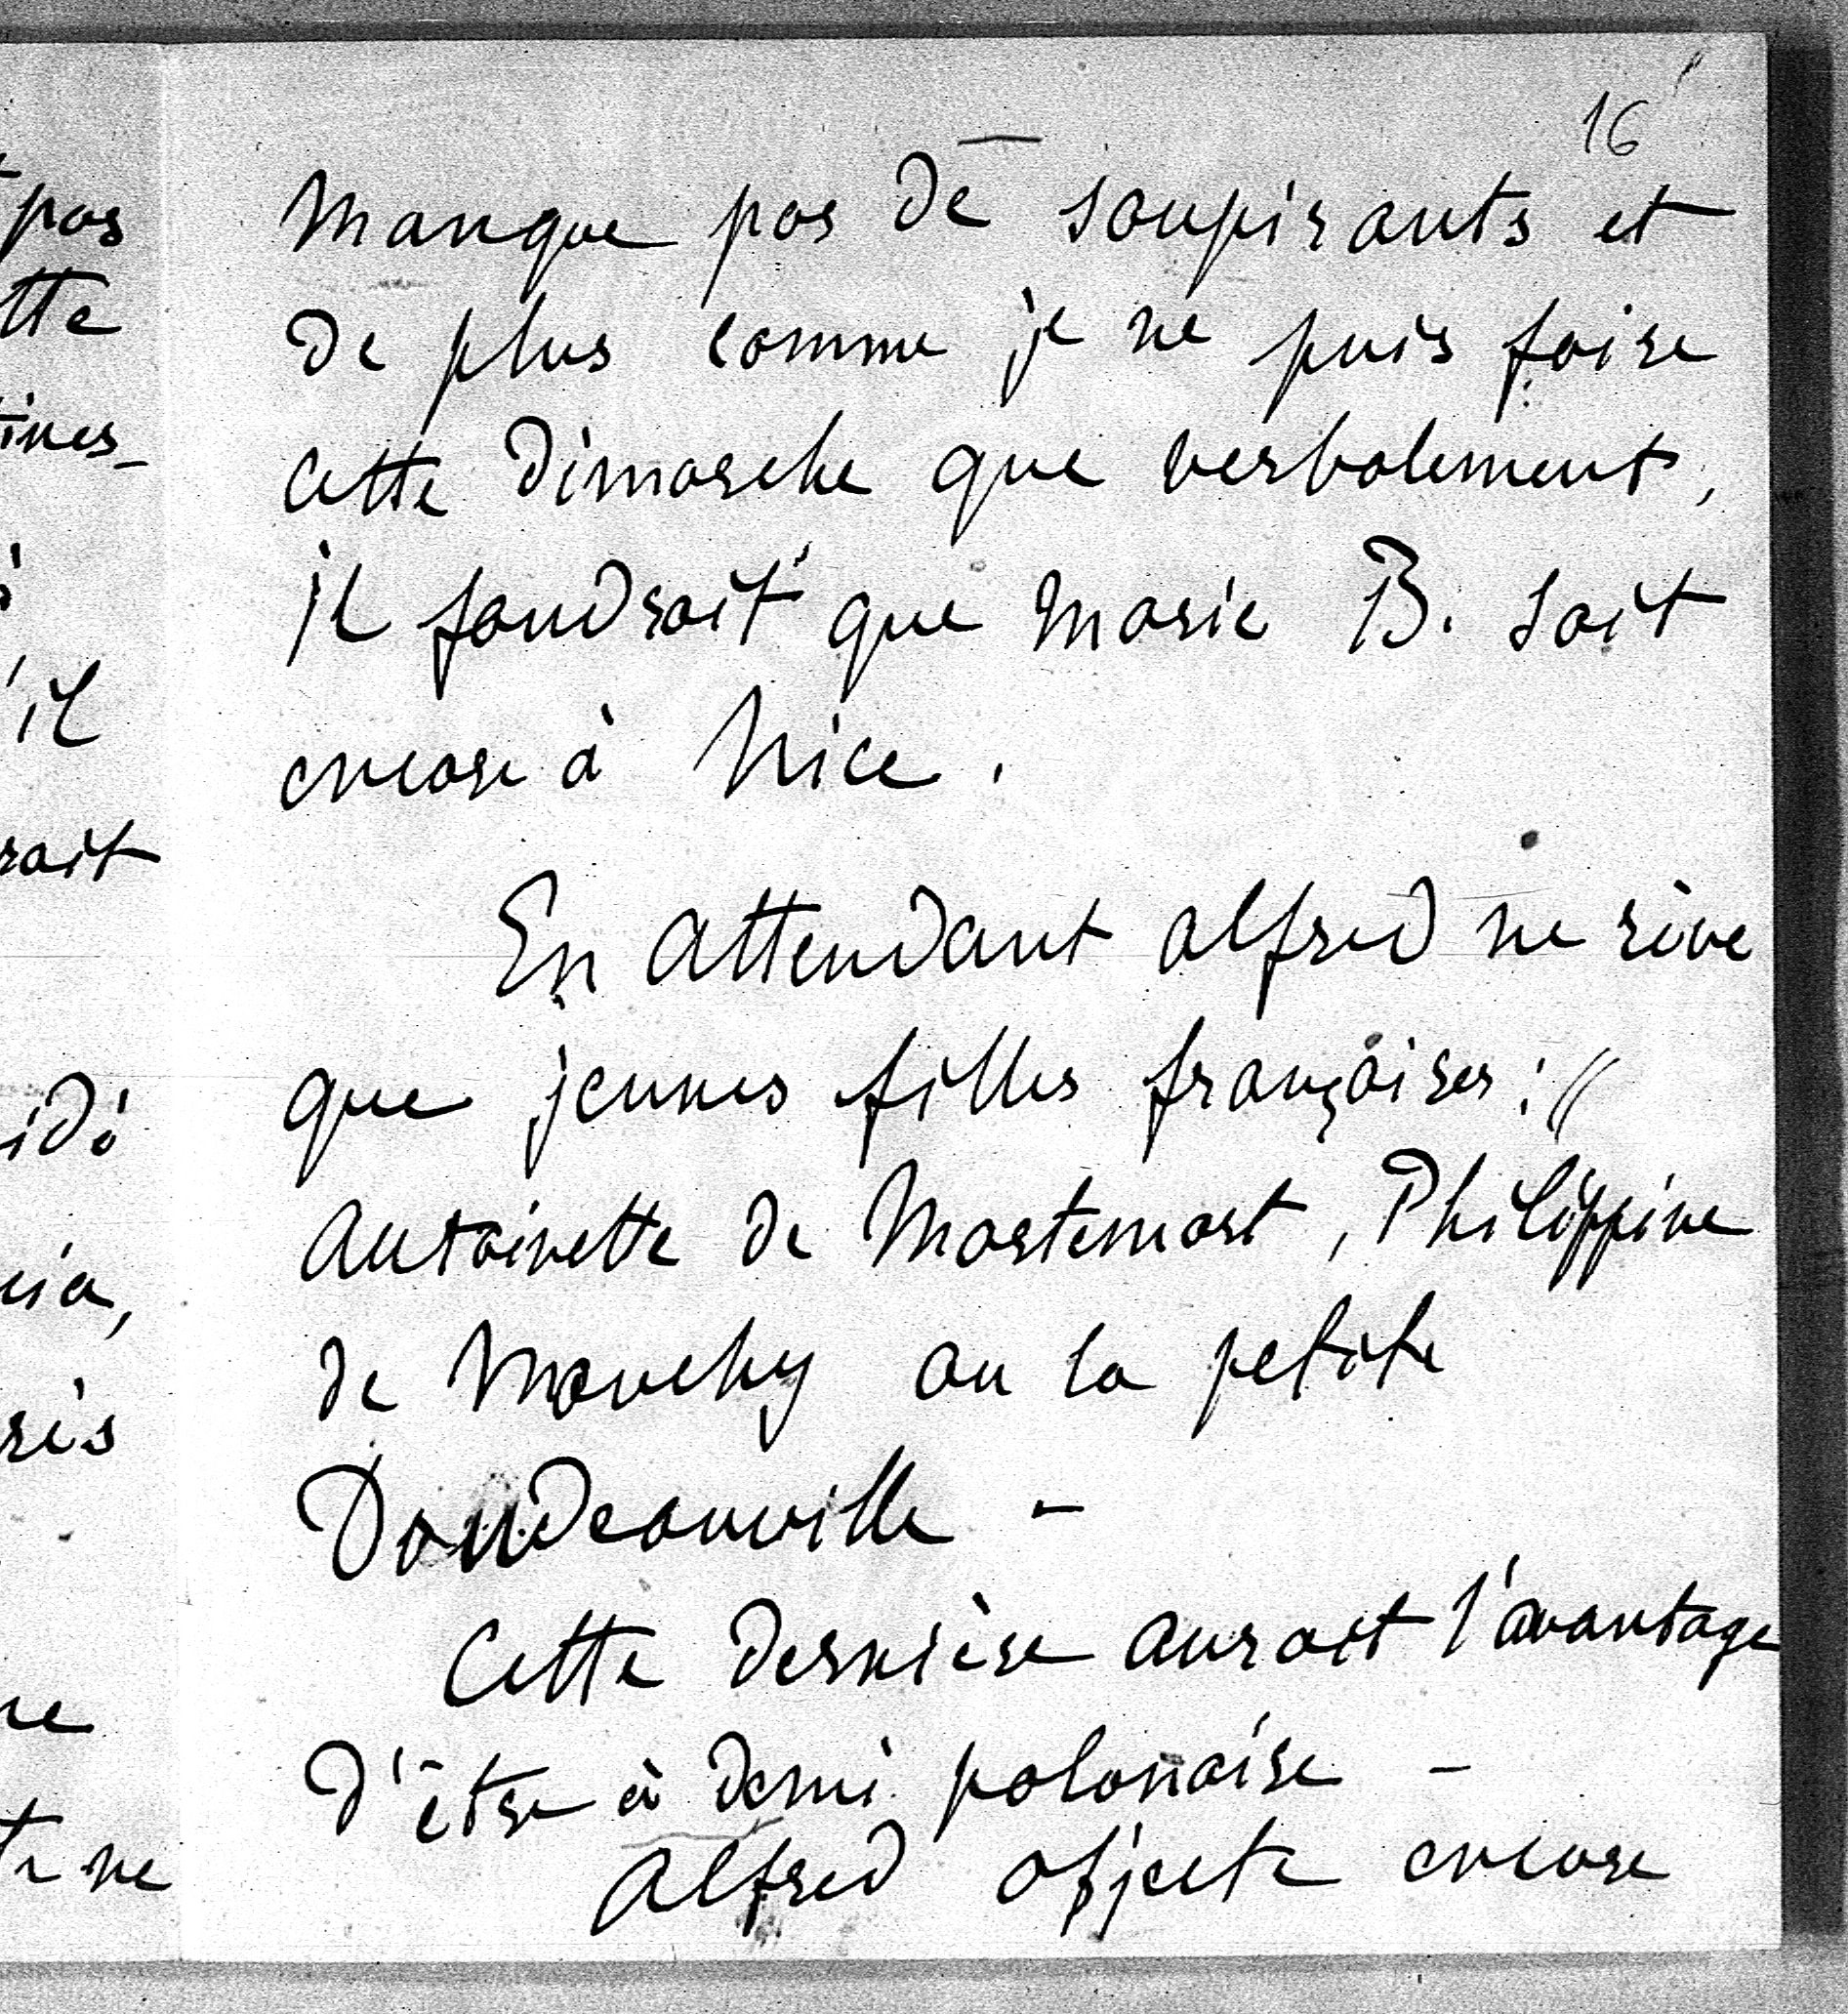 16
manque pas de soupirants et
de plus comme je ne puis faire
cette dimarche que verbalement,
il faudrait que Marie B. soit
encore à Nice.
En attendant Alfred ne rêve
que jeunes filles françaises :
Antoinette de Mortemart, Philippine
de Mouchy ou la petite
Doudeauville -
Cette dernière aurait l'avantage
d'être à demi polonaise -
Alfred objecte encore
pas
tte
ines-
'il
rait
idé
cia,
ris
ne
te ne